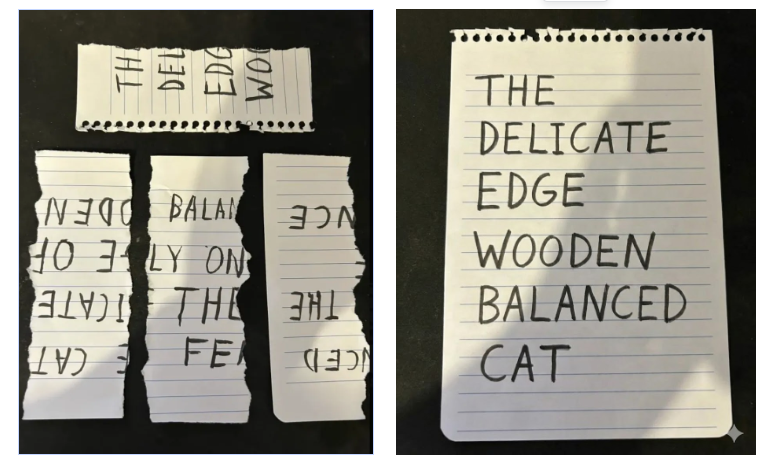 TH
DEL
EDG
WOO
CAT
ICATE
E OF
ODEN
BALAN
LY ON
THE
FEN
NCED
THE
NCE
THE
DELICATE
EDGE
WOODEN
BALANCED
CAT